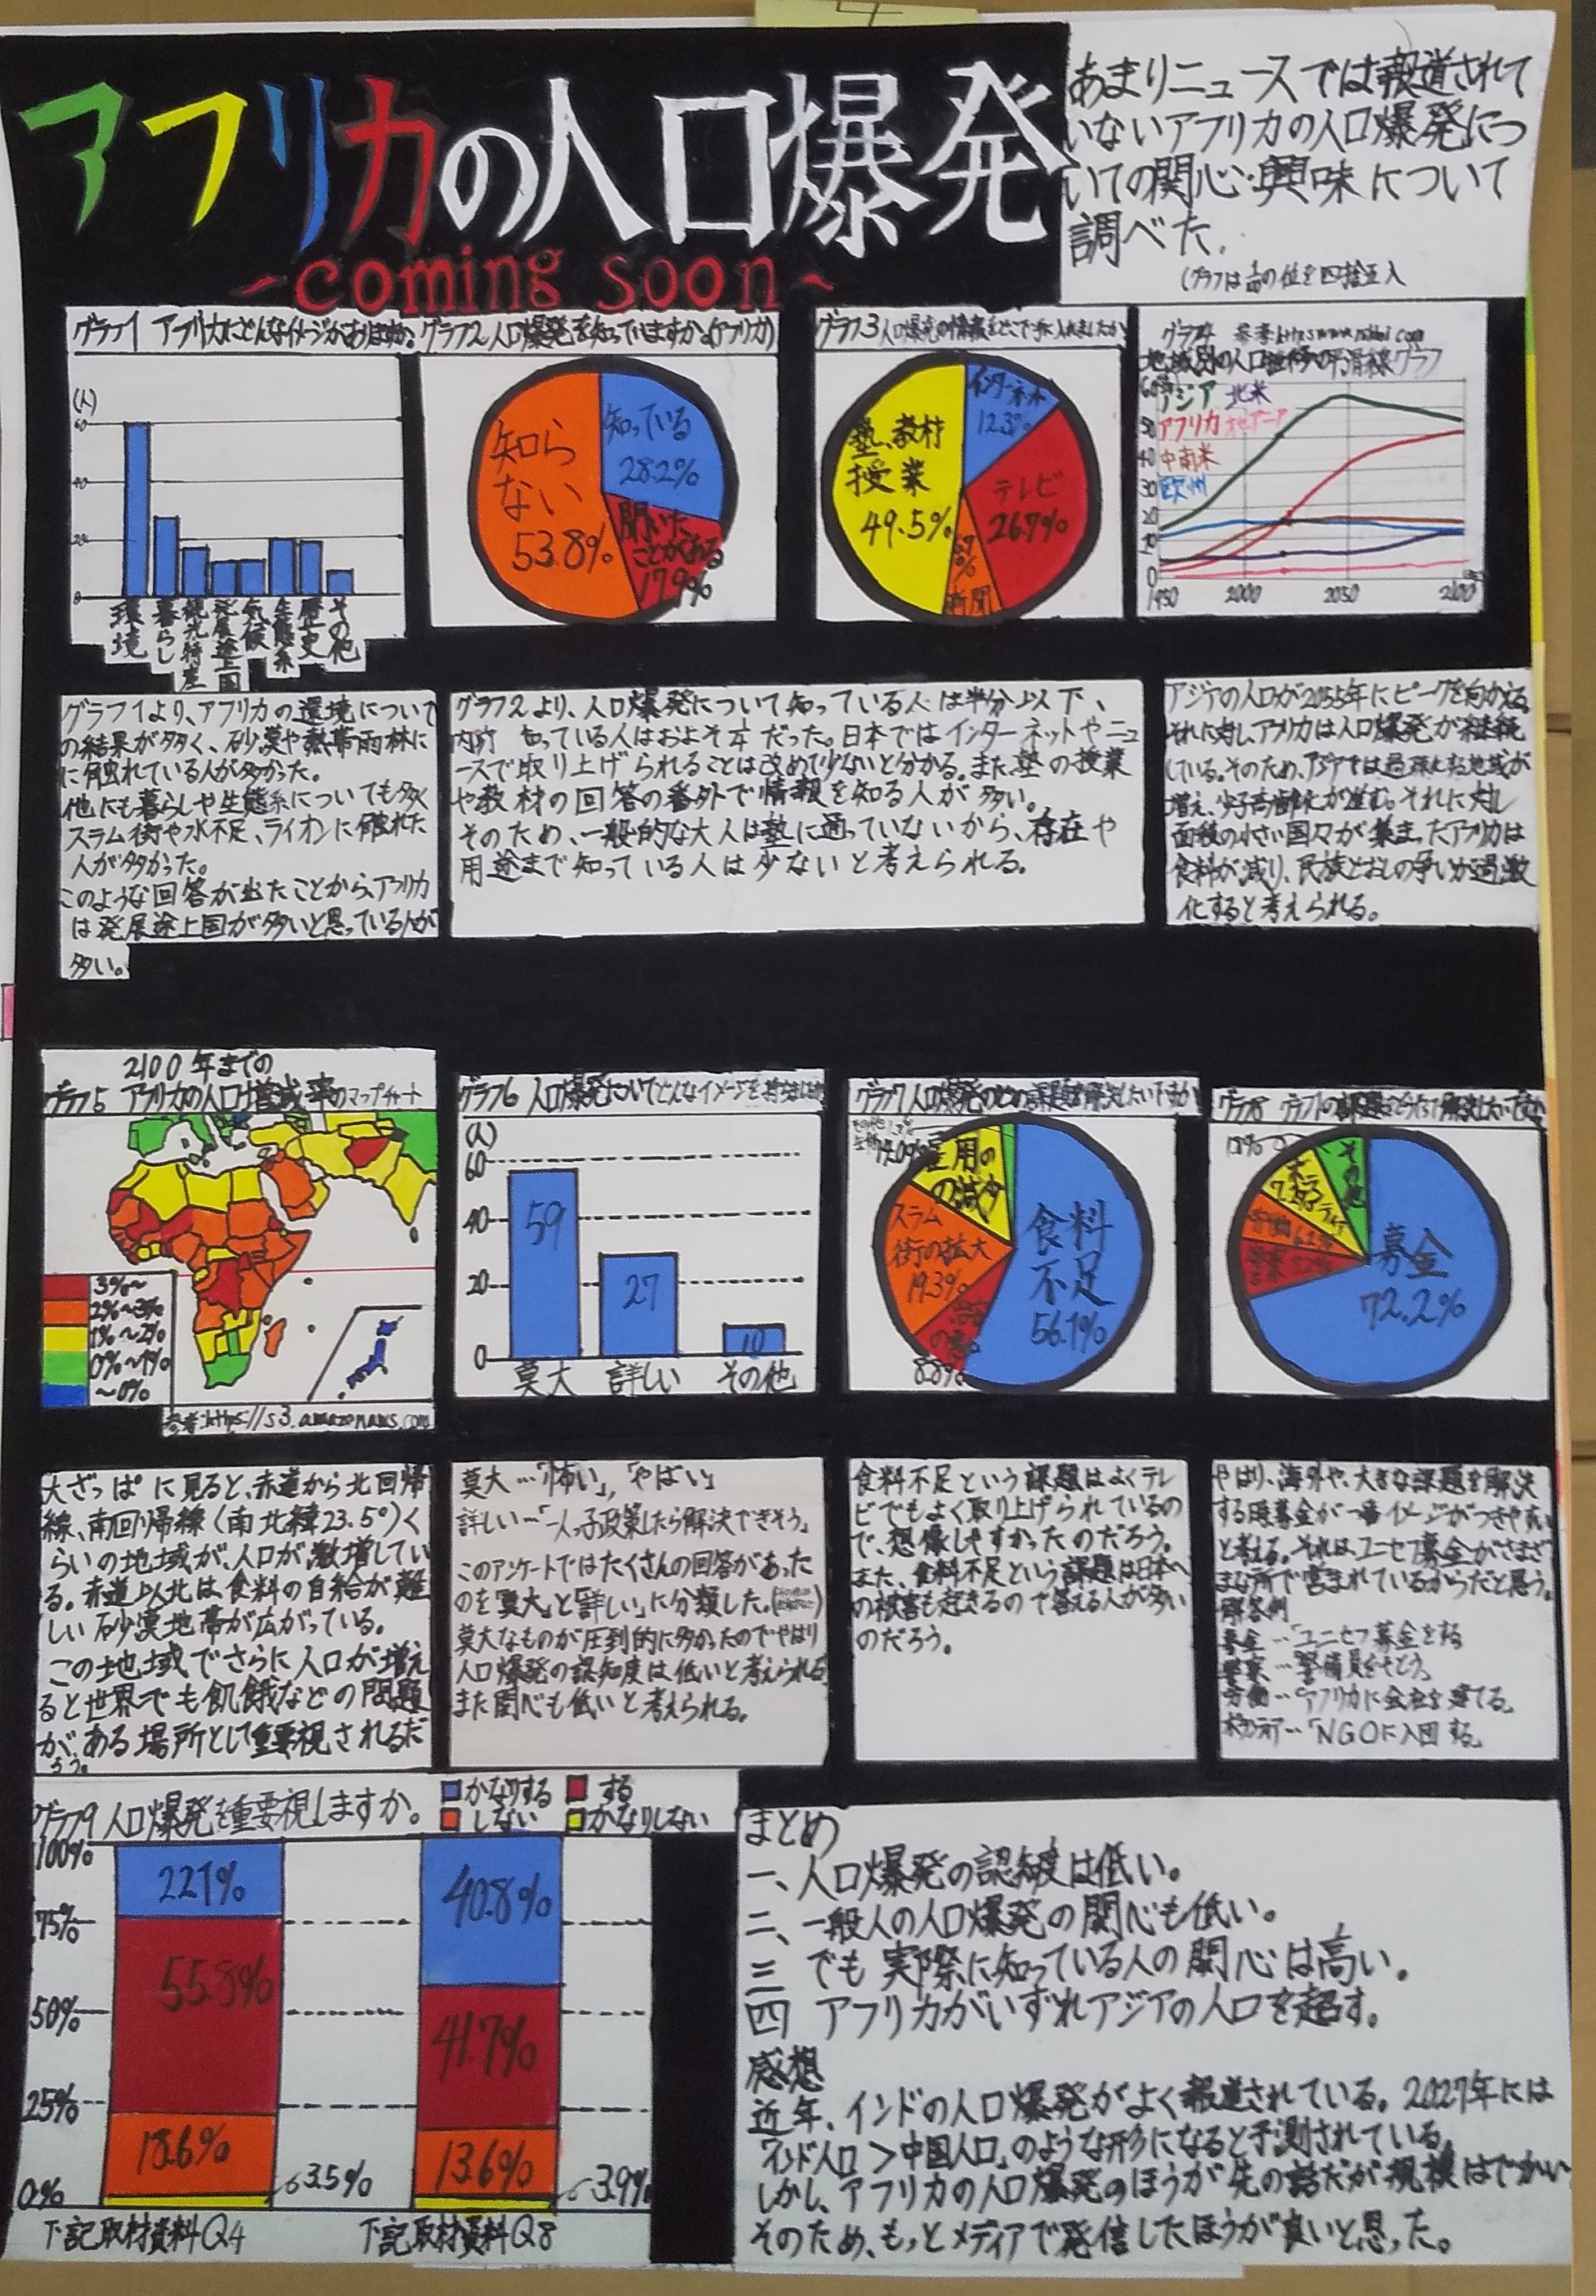 アフリカの人口爆発
~coming soon~
あまりニュースでは報道されて
いないアフリカの人口爆発につ
いての関心・興味について
調べた。
グラフ1 アフリカにどんなイメージがありますか。
(人)
60
40
20
0
環境
暮らし
観光特産
発展途上国
気候
生態系
歴史
その他
グラフ2 人口爆発を知っていますか。(アフリカ)
知っている
28.2%
聞いた
ことがある
17.9%
知ら
ない
53.8%
グラフ3 人口爆発の情報をどこで手に入れましたか
インターネット
12.3%
テレビ
26.7%
新聞
塾、教材
授業
49.5%
グラフ4
地域別の人口推移の平滑線グラフ
アジア 北米
アフリカ オセアニア
中南米
欧州
50
40
30
20
10
0
1950 2000 2050 2100
グラフ1より、アフリカの環境について
の結果が多く、砂漠や熱帯雨林に
に触れている人が多かった。
他にも暮らしや生態系についても多く
スラム街や水不足、ライオンに触れた
人が多かった。
このような回答が出たことから、アフリカ
は発展途上国が多いと思っている人が
多い。
グラフ2より、人口爆発について知っている人は半分以下、
知っている人はおよそ だった。日本ではインターネットやニュ
ースで取り上げられることは改めて少ないと分かる。また塾の授業
や教材の回答の番外で情報を知る人が多い。
そのため、一般的な大人は塾に通っていないから、存在や
用途まで知っている人は少ないと考えられる。
アジアの人口が2055年にピークを向かえる。
それに対し、アフリカは人口爆発が継続
している。そのため、アジアでは過疎化する地域が
増え、少子高齢化が進む。それに対し
面積の小さい国々が集まったアフリカは
食料が減り、民族どおしの争いが過激
化すると考えられる。
2100年までの
グラフ5 アフリカの人口増減率のマップチャート
3%~
2%~3%
1%~2%
0%~1%
~0%
参考:https://s3.amazonaws.com
グラフ6 人口爆発についてどんなイメージを
(人)
60
40
20
0
59
27
10
莫大 詳しい その他
グラフ7 人口爆発のどの課題を解決したいですか
食料
不足
56.1%
8.8%
スラム
街の拡大
19.3%
雇用の
の減少
グラフ8
募金
72.2%
その他
大ざっぱに見ると、赤道から北回帰
線、南回帰線(南北緯23.5°)く
らいの地域が、人口が激増してい
る。赤道以北は食料の自給が難
しい砂漠地帯が広がっている。
この地域でさらに人口が増え
ると世界でも飢餓などの問題
がある場所として重要視されるだ
ろう。
莫大…「怖い」,「やばい」
詳しい…「一人っ子政策したら解決できそう」
このアンケートではたくさんの回答があった
のを「莫大」と「詳しい」に分類した。
莫大なものが圧倒的に多かったのでやはり
人口爆発の認知度は低いと考えられる
また関心も低いと考えられる。
食料不足という課題はよくテレ
ビでもよく取り上げられているの
で、想像しやすかったのだろう。
また、食料不足という課題は日本へ
の被害も起きるので答える人が多い
のだろう。
やはり、海外や、大きな課題を解決
する際募金が一番イメージがつきやすい
と考える。それは、ユニセフ募金がさまざ
まな所で営まれているからだと思う。
解答例
募金…「ユニセフ募金をする」
労働…「アフリカに会社を建てる」
ボランティア…「NGOに入団する」
グラフ9 人口爆発を重要視しますか。
かなりする する
しない かなりしない
100%
75%
50%
25%
0%
22.1%
55.8%
18.6%
3.5%
40.8%
41.7%
13.6%
3.9%
下記取材資料Q4 下記取材資料Q8
まとめ
一、人口爆発の認知度は低い。
二、一般人の人口爆発の関心も低い。
三 でも実際に知っている人の関心は高い。
四 アフリカがいずれアジアの人口を超す。
感想
近年、インドの人口爆発がよく報道されている。2027年には
「インド人口>中国人口」のような形になると予測されている。
しかし、アフリカの人口爆発のほうが先の話だが規模はでかい
そのため、もっとメディアで発信したほうが良いと思った。